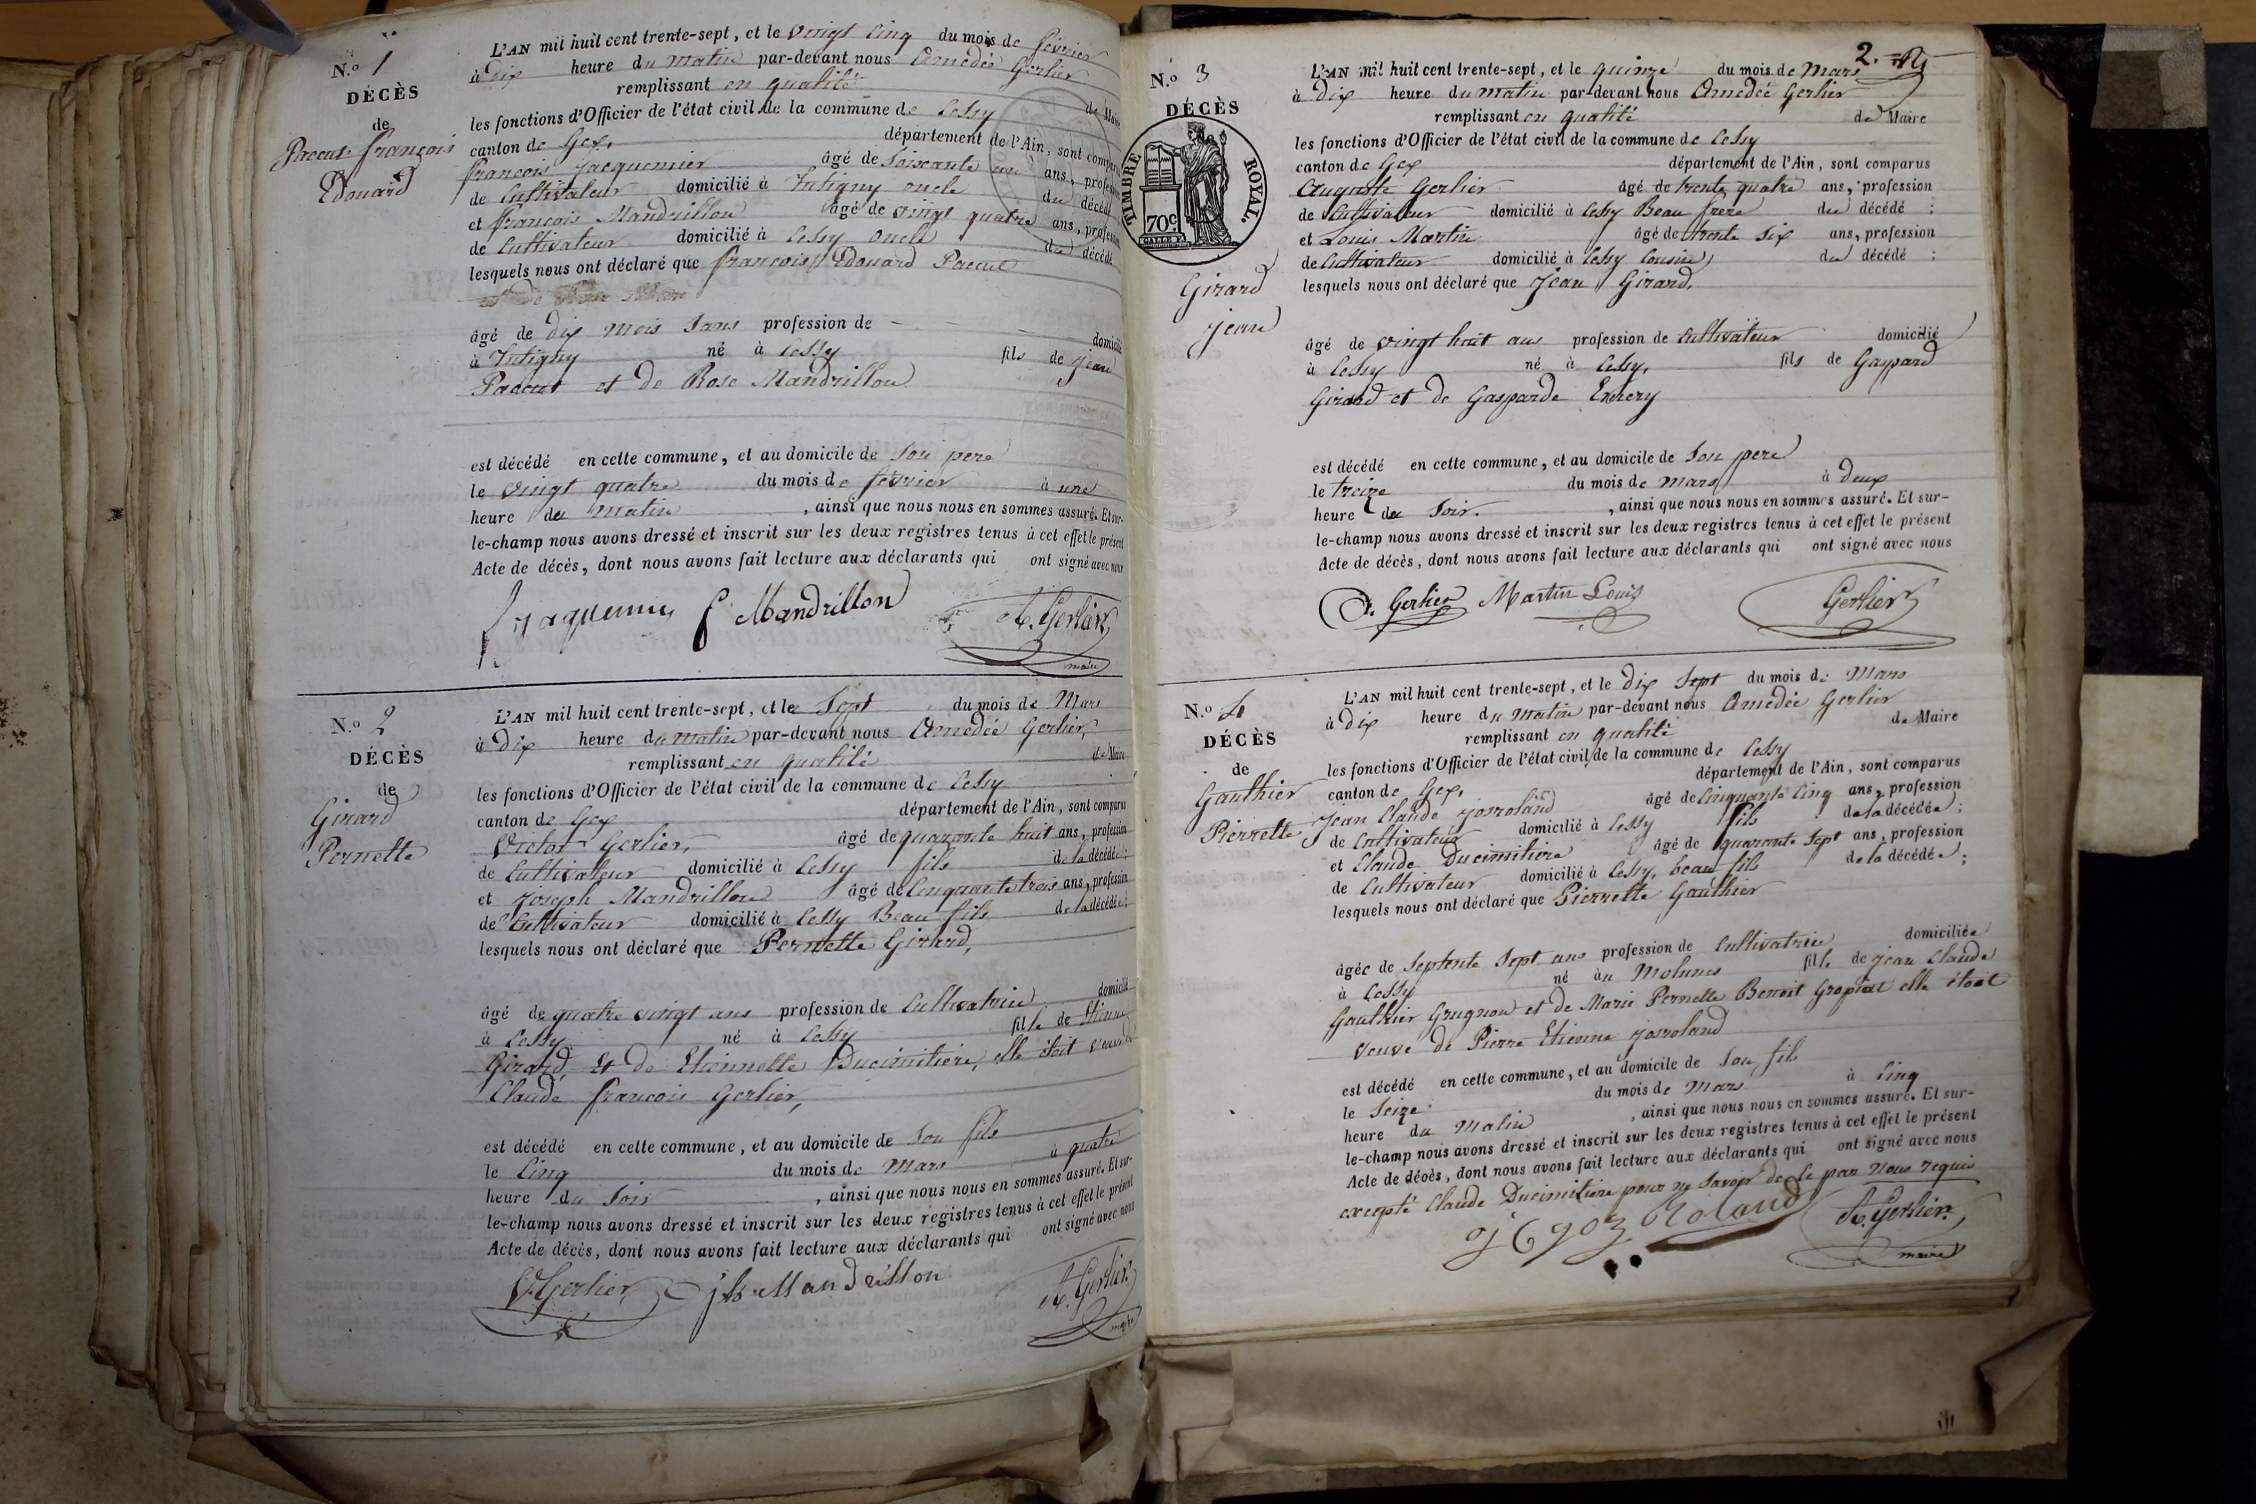 N.o 1
DÉCÈS
de
Paccut françois
Edouard
L'AN mil huit cent trente-sept, et le vingt cinq du mois de février
à Dix heure du matin par-devant nous Amedée Gerlier
remplissant en qualité de Maire
les fonctions d'Officier de l'état civil de la commune de Cessy
canton de Gex, département de l'Ain, sont comparus
françois Jacquemier âgé de Soixante un ans, profession
de Cultivateur domicilié à Tutigny oncle du décédé
et françois Mandrillon âgé de vingt quatre ans, profession
de Cultivateur domicilié à Cessy oncle du décédé
lesquels nous ont déclaré que françois Edouard Paccut
âgé de dix mois Sans profession de domicilié
à Tutigny né à Cessy fils de Jean
Paccut et de Rose Mandrillon
est décédé en cette commune, et au domicile de Son pere
le vingt quatre du mois de février à une
heure du matin, ainsi que nous nous en sommes assuré. Et sur-
le-champ nous avons dressé et inscrit sur les deux registres tenus à cet effet le présent
Acte de décès, dont nous avons fait lecture aux déclarants qui ont signé avec nous
f jaquemier f Mandrillon A. Gerlier
maire
N.o 2
DÉCÈS
de
Girard
Pernette
L'AN mil huit cent trente-sept, et le Sept du mois de Mars
à Dix heure du matin par-devant nous Amedée Gerlier,
remplissant en qualité de Maire
les fonctions d'Officier de l'état civil de la commune de Cessy
canton de Gex département de l'Ain, sont comparus
Victor Gerlier, âgé de quarante huit ans, profession
de Cultivateur domicilié à Cessy fils de la décédée;
et Joseph Mandrillon âgé de Cinquante trois ans, profession
de Cultivateur domicilié à Cessy Beau fils de la décédée;
lesquels nous ont déclaré que Pernette Girard,
âgé de quatre vingt ans profession de Cultivatrice domicilié
à Cessy né à Cessy fille de Etienne
Girard, et de Etiennette Ducimitiere, elle étoit veuve de
Claude françois Gerlier,
est décédé en cette commune, et au domicile de Son fils
le Cinq du mois de Mars à quatre
heure du Soir, ainsi que nous nous en sommes assuré. Et sur-
le-champ nous avons dressé et inscrit sur les deux registres tenus à cet effet le présent
Acte de décès, dont nous avons fait lecture aux déclarants qui ont signé avec nous
V. Gerlier jh Mandrillon A. Gerlier
maire
2.
N.o 3
DÉCÈS
TIMBRE ROYAL.
70c.
Girard
jean
L'AN mil huit cent trente-sept, et le quinze du mois de Mars
à Dix heure du matin par-devant nous Amedée Gerlier
remplissant en qualité de Maire
les fonctions d'Officier de l'état civil de la commune de Cessy
canton de Gex département de l'Ain, sont comparus
Auguste Gerlier âgé de trente quatre ans, profession
de Cultivateur domicilié à Cessy Beau frere du décédé;
et Louis Martin âgé de trente Six ans, profession
de Cultivateur domicilié à Cessy Cousin, du décédé;
lesquels nous ont déclaré que Jean Girard,
âgé de vingt huit ans profession de Cultivateur domicilié
à Cessy né à Cessy, fils de Gaspard
Girard et de Gasparde Emery
est décédé en cette commune, et au domicile de Son pere
le treize du mois de mars à deux
heure du Soir., ainsi que nous nous en sommes assuré. Et sur-
le-champ nous avons dressé et inscrit sur les deux registres tenus à cet effet le présent
Acte de décès, dont nous avons fait lecture aux déclarants qui ont signé avec nous
Gerlier Martin Louis Gerlier
N.o 4
DÉCÈS
de
Gauthier
Pierrette
L'AN mil huit cent trente-sept, et le Dix Sept du mois de Mars
à Dix heure du Matin par-devant nous Amedée Gerlier
remplissant en qualité de Maire
les fonctions d'Officier de l'état civil de la commune de Cessy
canton de Gex, département de l'Ain, sont comparus
Jean Claude Josroland âgé de Cinquante Cinq ans, profession
de Cultivateur domicilié à Cessy fils de la décédée;
et Claude Ducimitiere âgé de quarante Sept ans, profession
de Cultivateur domicilié à Cessy, beau fils de la décédée;
lesquels nous ont déclaré que Pierrette Gauthier
âgée de Septente Sept ans profession de Cultivatrice domiciliée
à Cessy né au Molunes fille de Jean Claude
Gauthier Grugnon et de Marie Pernette Benoit Gropiat elle étoit
veuve de Pierre Etienne Josroland
est décédé en cette commune, et au domicile de Son fils
le Seize du mois de Mars à Cinq
heure du Matin, ainsi que nous nous en sommes assuré. Et sur-
le-champ nous avons dressé et inscrit sur les deux registres tenus à cet effet le présent
Acte de décès, dont nous avons fait lecture aux déclarants qui ont signé avec nous
excepté Claude Ducimitiere pour ne Savoir de le par Nous requis
Roland A. Gerlier
maire